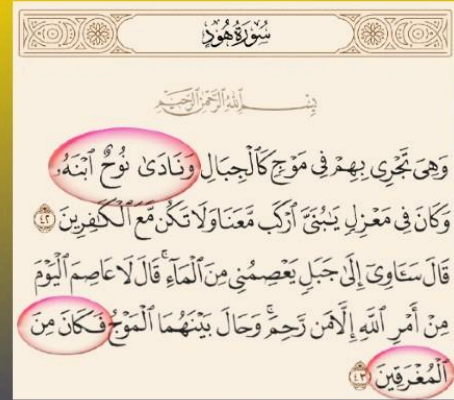 سُورَةُ هُودٍ
بِسْمِ ٱللَّهِ ٱلرَّحْمَٰنِ ٱلرَّحِيمِ
وَهِىَ تَجْرِى بِهِمْ فِى مَوْجٍ كَٱلْجِبَالِ وَنَادَىٰ نُوحٌ ٱبْنَهُۥ
وَكَانَ فِى مَعْزِلٍ يَٰبُنَىَّ ٱرْكَب مَّعَنَا وَلَا تَكُن مَّعَ ٱلْكَٰفِرِينَ ٤٢
قَالَ سَـَٔاوِىٓ إِلَىٰ جَبَلٍ يَعْصِمُنِى مِنَ ٱلْمَآءِ ۚ قَالَ لَا عَاصِمَ ٱلْيَوْمَ
مِنْ أَمْرِ ٱللَّهِ إِلَّا مَن رَّحِمَ ۚ وَحَالَ بَيْنَهُمَا ٱلْمَوْجُ فَكَانَ مِنَ
ٱلْمُغْرَقِينَ ٤٣